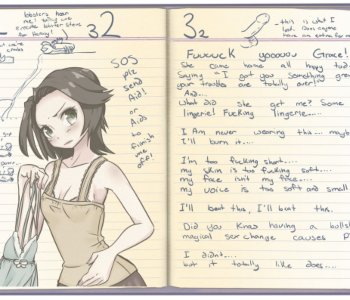 lobsters hear
me! Bring me
lobster stew
for Penny!
32
SOS
plz
send
Aid!
or
Aids
to
finish
me
off!
32
- this is what I
lost. Does anyone
have an extra for me?
Fuuuuck yooooou Grace!
She came home all happy today
Saying "I got you something great
your troubles are totally over!"
And...
what did she get me? Some
lingerie! Fucking lingerie.....
I Am never wearing this... maybe
I'll burn it....
I'm too fucking short....
my skin is too fucking soft....
my face isn't my face....
my voice is too soft and small
I'll beat this, I'll beat this.
Did you know having a bullsh
magical sex change causes P
I didn't....
but it totally like does....